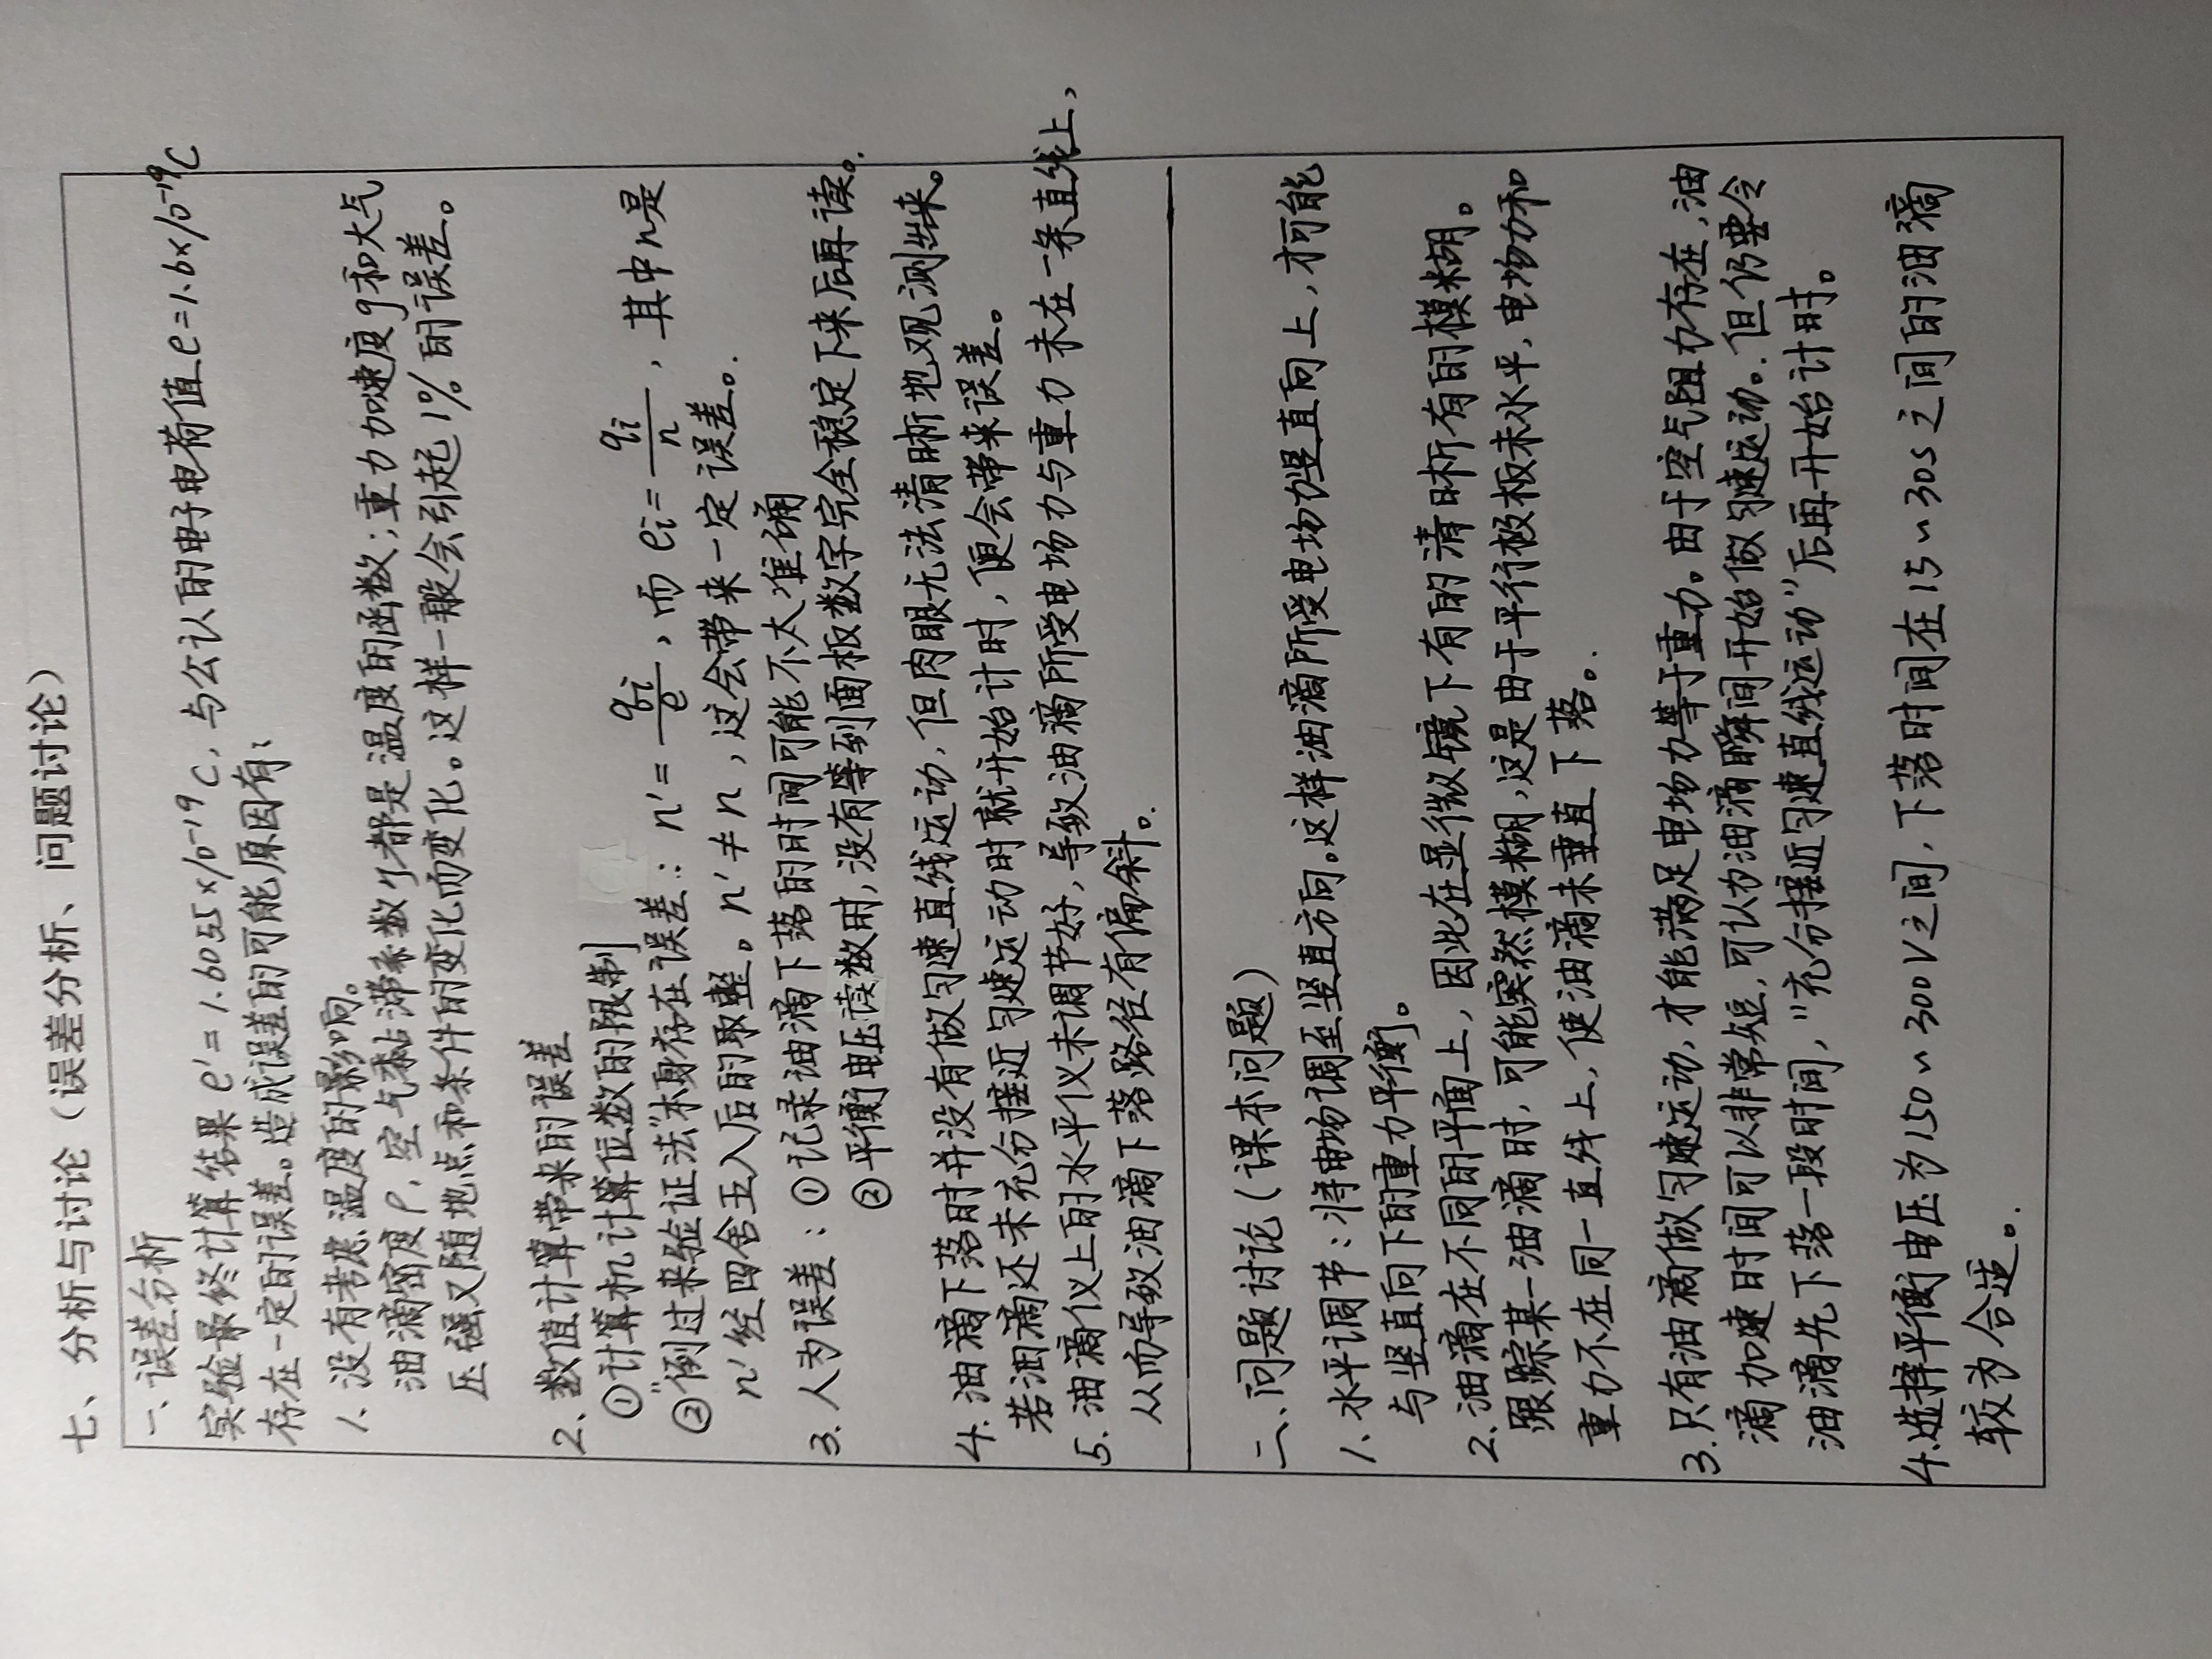 七、分析与讨论（误差分析、问题讨论）
一、误差分析
实验最终计算结果 e′=1.6055×10⁻¹⁹C，与公认的电子电荷值e=1.6×10⁻¹⁹C
存在一定的误差。造成误差的可能原因有：
1、没有考虑温度的影响。
油滴密度ρ，空气黏滞系数η都是温度的函数；重力加速度g和大气
压强又随地点和条件的变化而变化。这样一般会引起1%的误差。
2、数值计算带来的误差
①计算机计算位数的限制
②"倒过来验证法"本身存在误差：n′=qᵢ/e，而eᵢ=qᵢ/n，其中n是
n′经四舍五入后的取整。n′≠n，这会带来一定误差。
3、人为误差：①记录油滴下落的时间可能不太准确
②平衡电压读数时，没有等到面板数字完全稳定下来后再读。
4.油滴下落时并没有做匀速直线运动，但肉眼无法清晰地观测出来。
若油滴还未充分接近匀速运动时就开始计时，便会带来误差。
5.油滴仪上的水平仪未调节好，导致油滴所受电场力与重力未在一条直线上，
从而导致油滴下落路径有偏斜。
二、问题讨论（课本问题）
1、水平调节：将电场调至竖直方向。这样油滴所受电场力竖直向上，才可能
与竖直向下的重力平衡。
2.油滴在不同的平面上，因此在显微镜下有的清晰有的模糊。
跟踪某一油滴时，可能突然模糊，这是由于平行极板未水平，电场力和
重力不在同一直线上，使油滴未垂直下落。
3.只有油滴做匀速运动，才能满足电场力等于重力。由于空气阻力存在，油
滴加速时间可以非常短，可认为油滴瞬间开始做匀速运动。但仍要令
油滴先下落一段时间，"充分接近匀速直线运动"后再开始计时。
4.选择平衡电压为150~300V之间，下落时间在15~30s之间的油滴
较为合适。